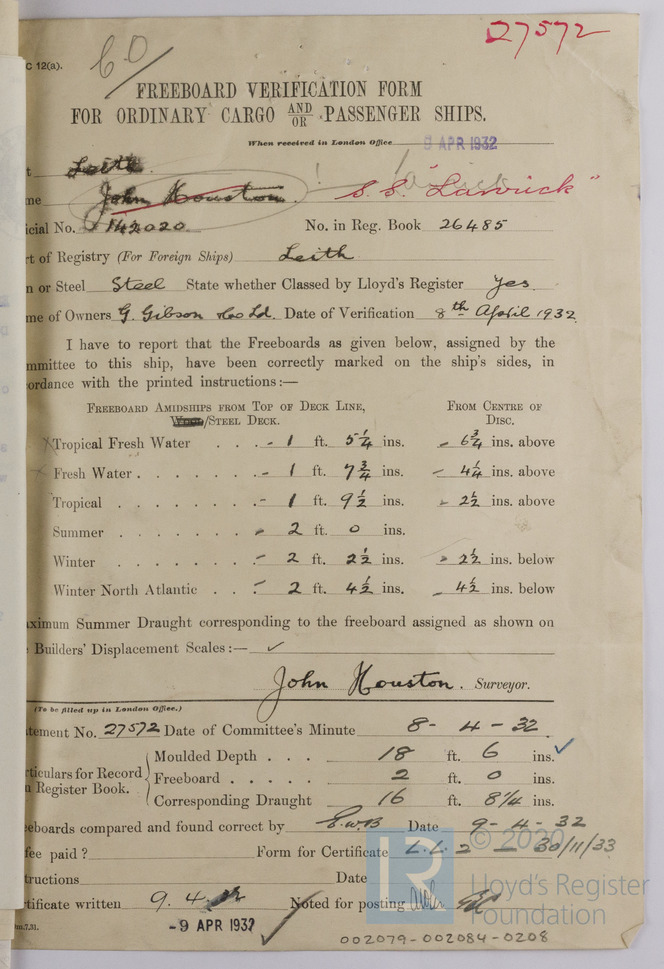 27572
C 12(a).
60/
FREEBOARD VERIFICATION FORM
FOR ORDINARY CARGO AND/OR PASSENGER SHIPS.
When received in London Office 9 APR 1932
t Leith.
me John Houston. ! Larwick S.S. "Larwick"
icial No. 142020 No. in Reg. Book 26485
rt of Registry (For Foreign Ships) Leith
n or Steel Steel State whether Classed by Lloyd's Register Yes.
me of Owners G. Gibson &Co Ld. Date of Verification 8th April 1932
I have to report that the Freeboards as given below, assigned by the
mmittee to this ship, have been correctly marked on the ship's sides, in
ordance with the printed instructions:—
FREEBOARD AMIDSHIPS FROM TOP OF DECK LINE, FROM CENTRE OF
/STEEL DECK. DISC.
x Tropical Fresh Water . . . - 1 ft. 5 1/4 ins. - 6 3/4 ins. above
x Fresh Water . . . . . . . - 1 ft. 7 3/4 ins. - 4 1/4 ins. above
Tropical . . . . . . . . - 1 ft. 9 1/2 ins. - 2 1/2 ins. above
Summer . . . . . . . . - 2 ft. 0 ins.
Winter . . . . . . . . - 2 ft. 2 1/2 ins. - 2 1/2 ins. below
Winter North Atlantic . . . - 2 ft. 4 1/2 ins. - 4 1/2 ins. below
aximum Summer Draught corresponding to the freeboard assigned as shown on
Builders' Displacement Scales:— ✓
John Houston. Surveyor.
(To be filled up in London Office.)
tement No. 27572 Date of Committee's Minute 8 - 4 - 32.
Moulded Depth . . . 18 ft. 6 ins. ✓
rticulars for Record Freeboard . . . . . 2 ft. 0 ins.
n Register Book. Corresponding Draught 16 ft. 8 1/4 ins.
eeboards compared and found correct by E.W.B Date 9 - 4 - 32
fee paid ? Form for Certificate L.L. 2 — 30/11/33
tructions Date
rtificate written 9. 4. 32 Noted for posting
- 9 APR 1932 ✓
m.7,31.
002079-002084-0208
© 2020
LR
Lloyd's Register
Foundation